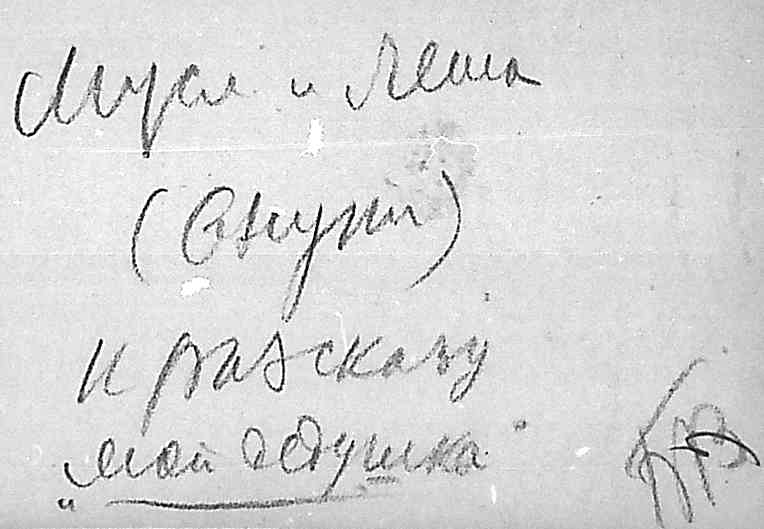 Муся и Леша
(Внуки)
К рассказу
„Мой дедушка"